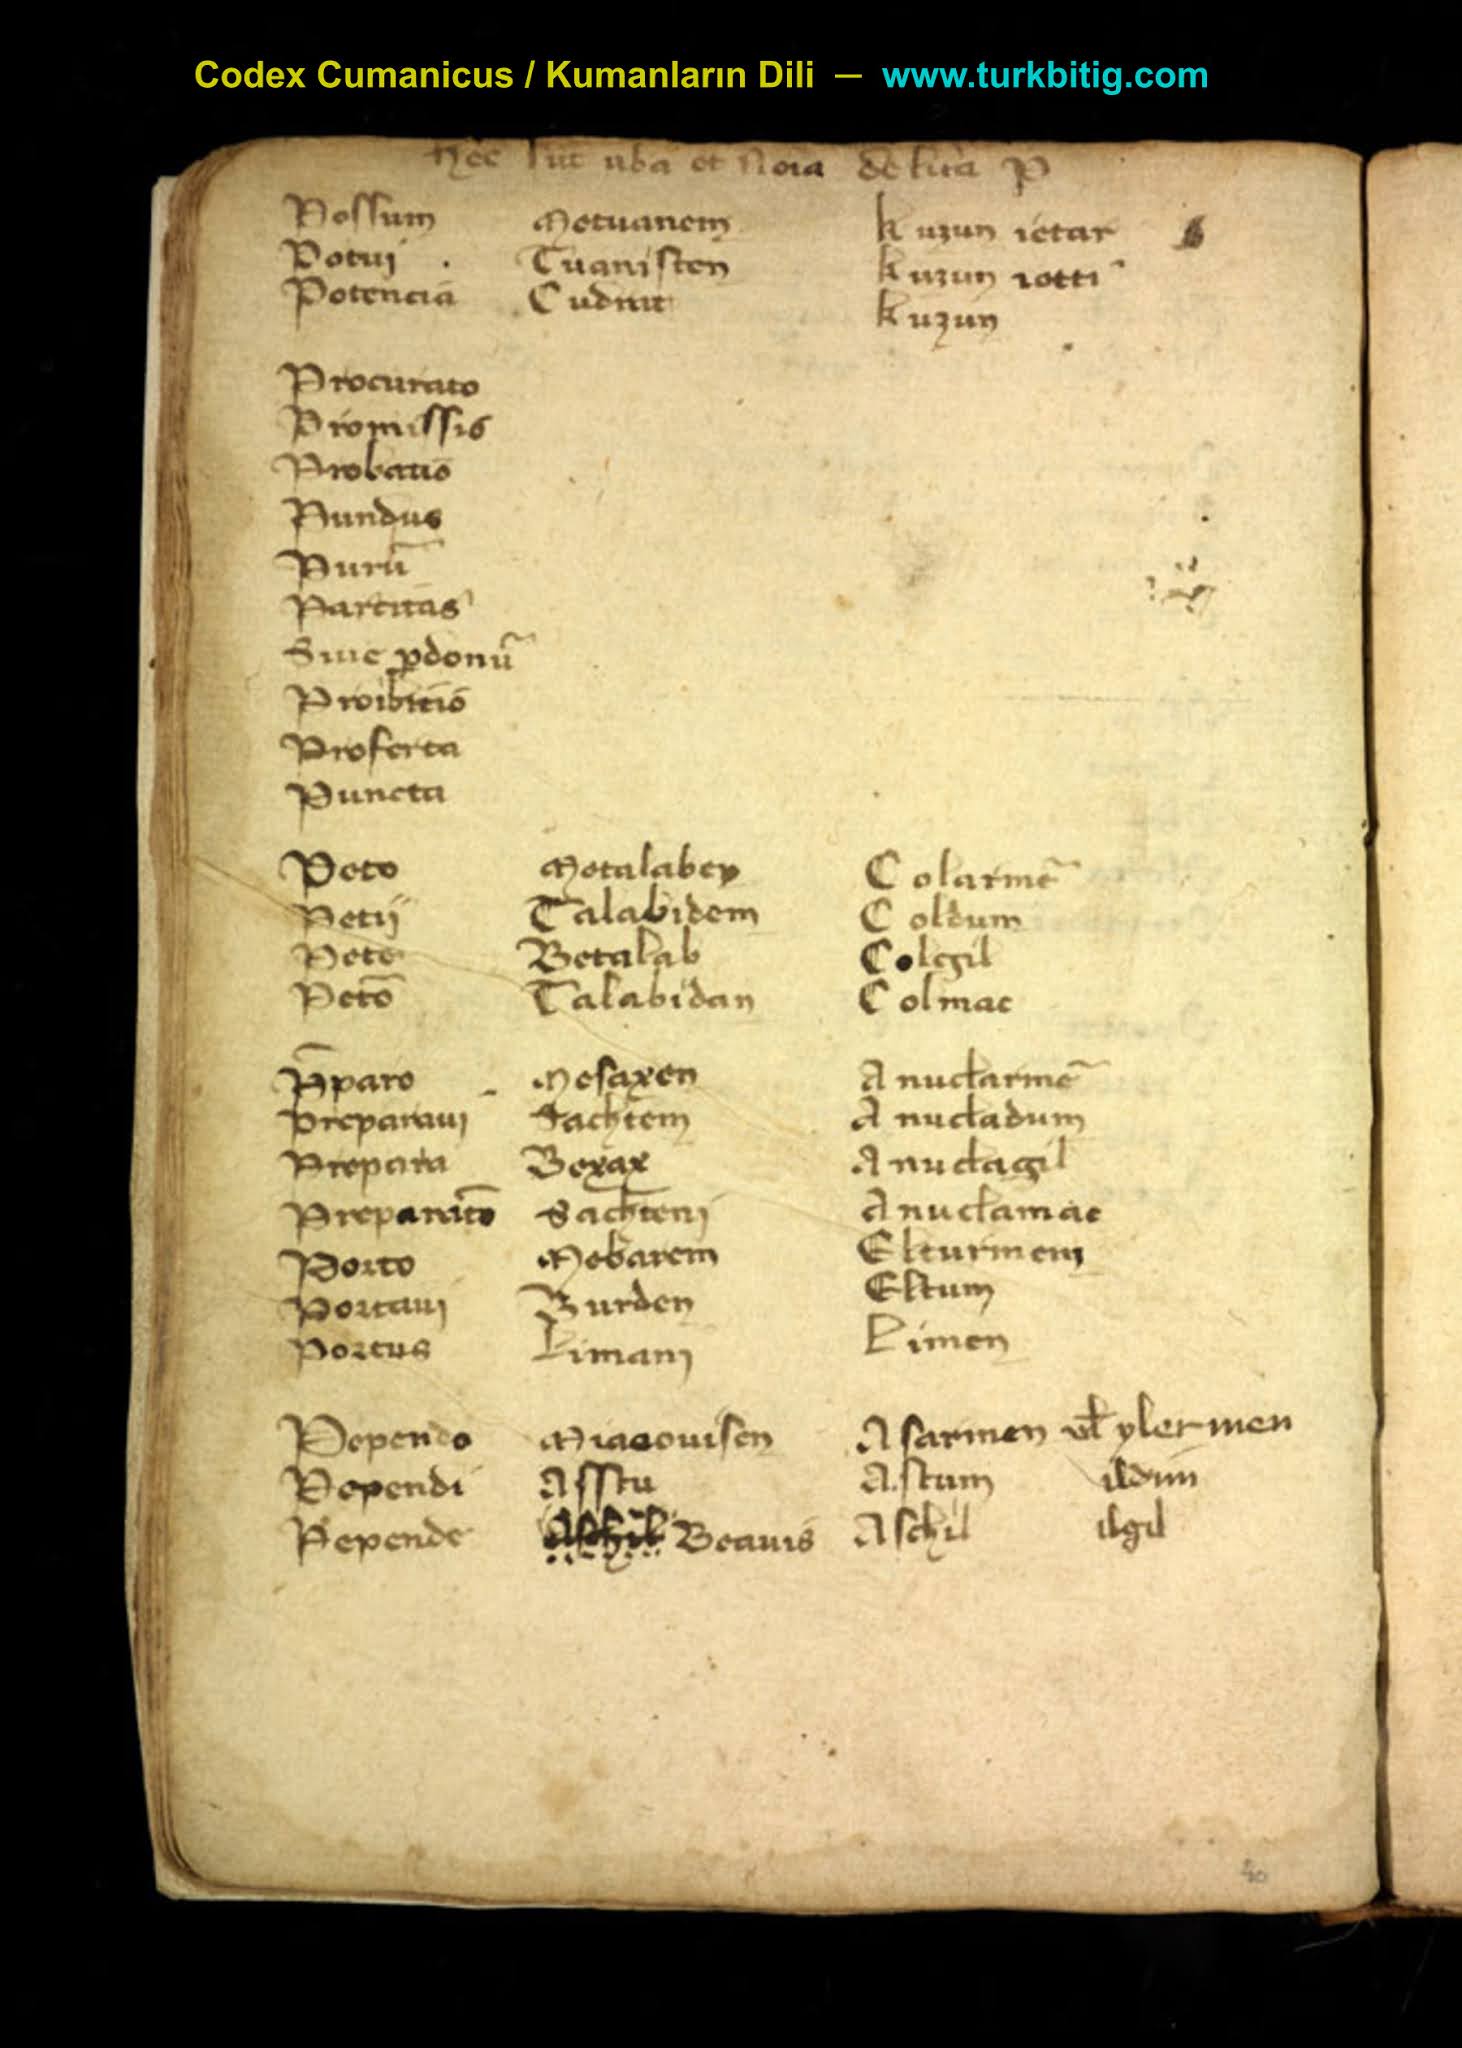 Codex Cumanicus / Kumanların Dili — www.turkbitig.com
Hec sūt uba et Noīa de lit̄a P
Possum Metuanem Kuzun ietar
Potui Tuanisten Kuzun ietti
Potencia Cudrat Kuzun
Procurato
Promissio
Probatio
Pundus
Purū
Partitas
Siue pdonū
Proibitio
Proferta
Puncta
Peto Metalabem Colarmē
Petij Talabidem Coldum
Pete Betalab Colgil
Petō Talabidan Colmac
P̄paro Mesaxen Anuclarmē
Preparaui Sachtem Anucladum
Prepara Bexax Anuclagil
Preparatō Sachteni Anuclamac
Porto Mebarem Elturmem
Portaui Burden Eltum
Portus Limani Limen
Pependo Miaoouisen Asarmen ul ylermen
Pependi Asstu Astum ildim
Pepende Aschil Beauis Aschil ilgil
40